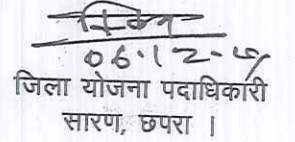 06.12.
जिला योजना पदाधिकारी
सारण, छपरा ।